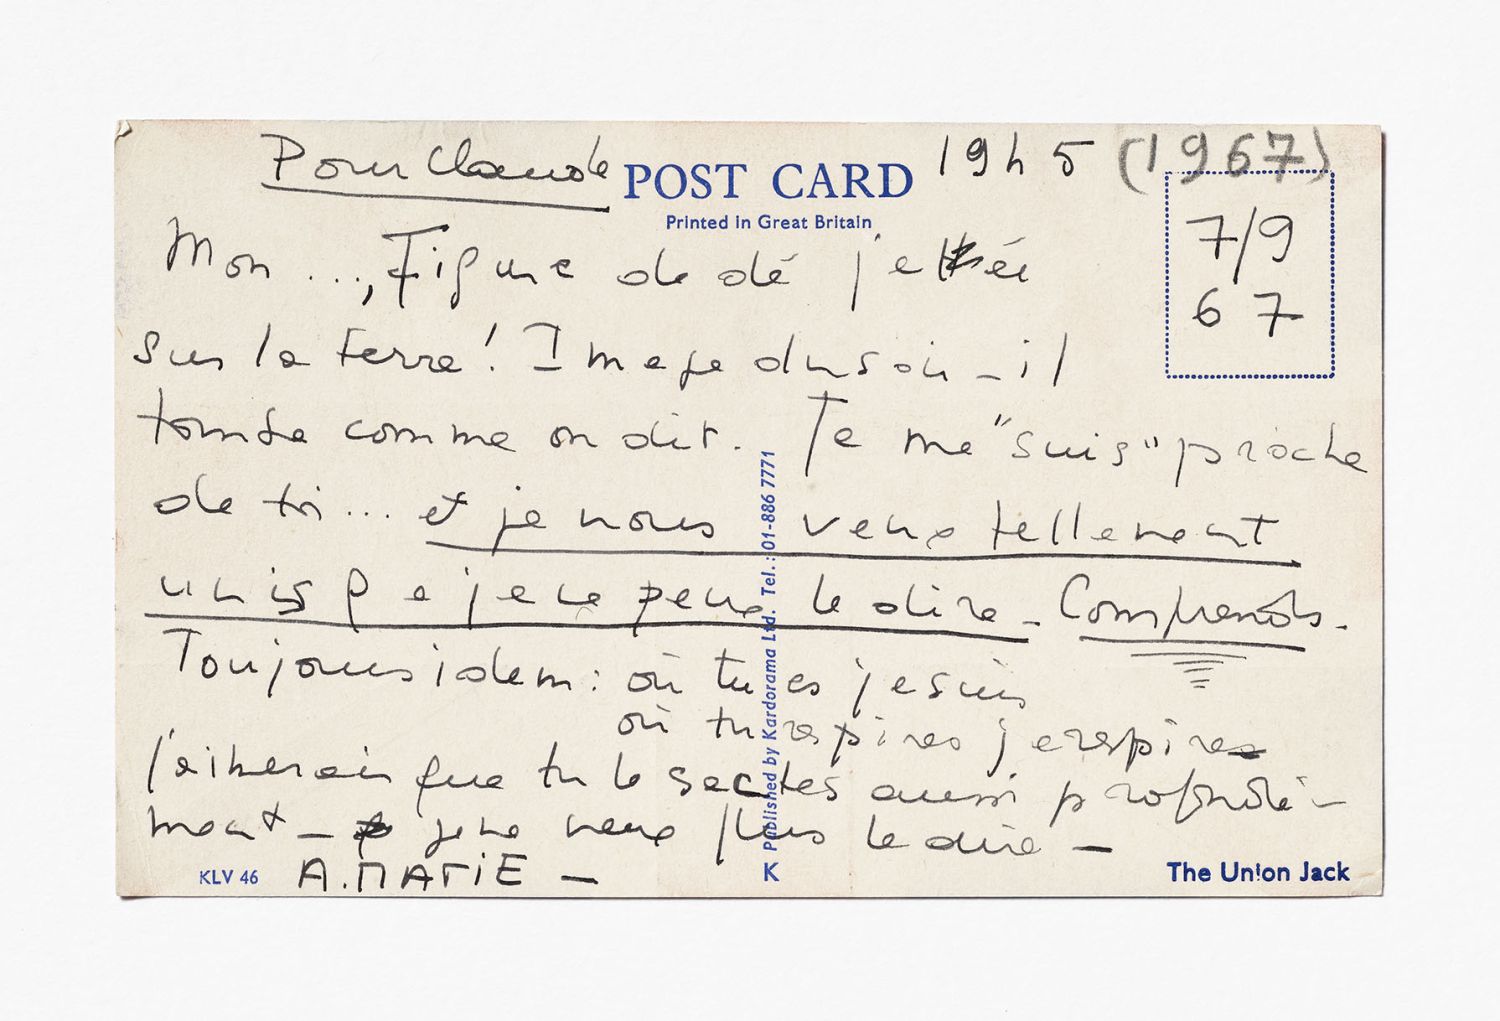 Pour Claude
POST CARD
19h5 (1967)
Printed in Great Britain
7/9
67
Mon ..., Figure de dé jetée
sur la terre! Image du soir - il
tombe comme on dit. Je me "suis" proche
de toi... et je nous veux tellement
unis que je ne peux le dire - Comprends -
Toujours idem: où tu es je suis
où tu respires je respire
J'aimerais que tu le saches aussi profondé-
ment - je ne veux plus le dire -
A. MARIE -
KLV 46
K Published by Kardorama Ltd. Tel.: 01-886 7771
The Union Jack